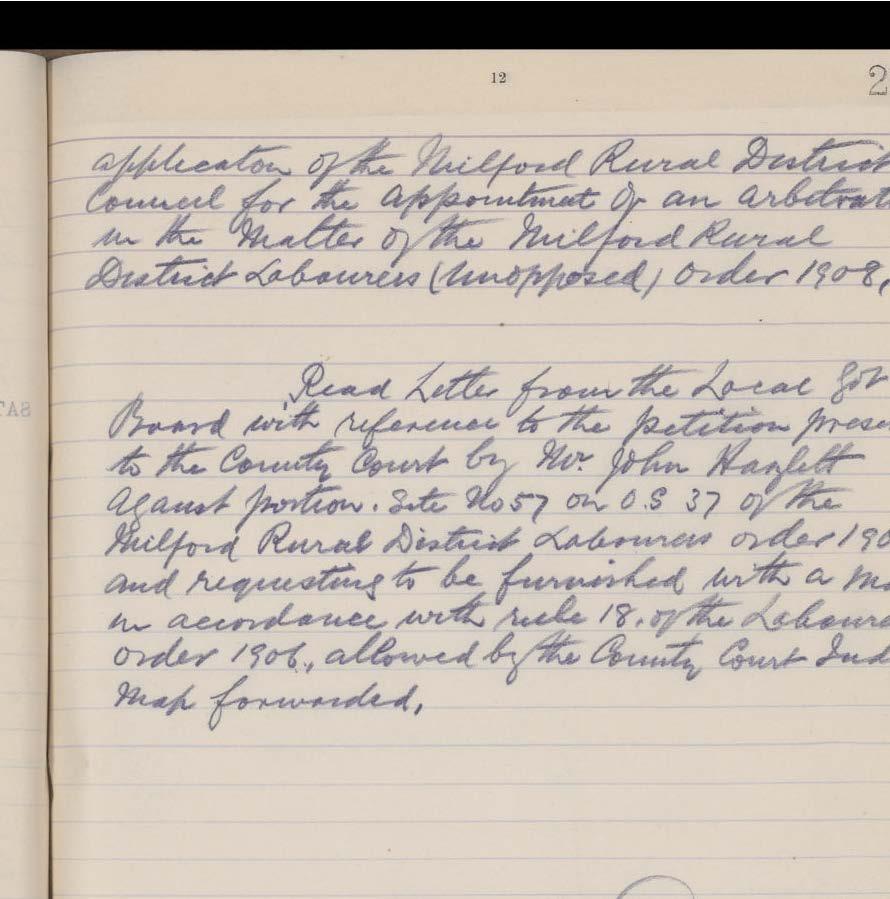 12
2
applicaton of the Milford Rural District
Council for the appointment of an arbitrat
in the Matter of the Milford Rural
District Labourers (Unopposed) Order 1908,
Read Letter from the Local Gov
Board with reference to the petition prese
to the County Court by Mr. John Hazlett
against portion. Site No 57 on O.S 37 of the
Milford Rural District Labourers order 190
and requesting to be furnished with a Ma
in accordance with rule 18. of the Laboure
order 1906., allowed by the County Court Jud
Map forwarded,